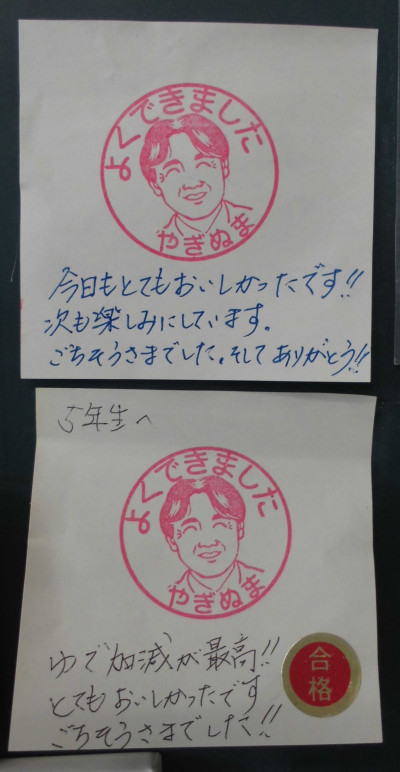 よくできました
やぎぬま
今日もとてもおいしかったです!!
次も楽しみにしています。
ごちそうさまでした。そしてありがとう!!
5年生へ
よくできました
やぎぬま
ゆで加減が最高!!
とてもおいしかったです
ごちそうさまでした!!
合格